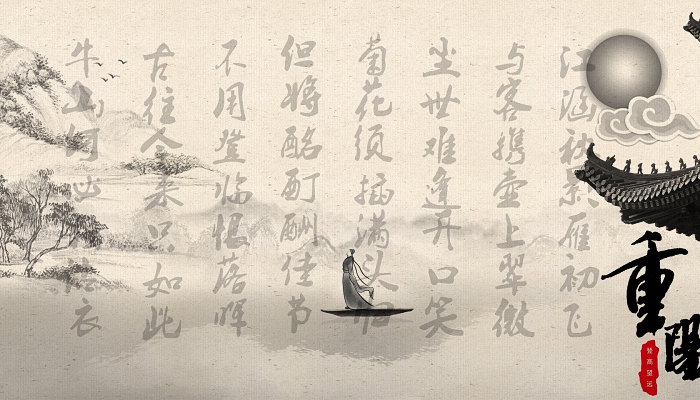 江涵秋影雁初飞
与客携壶上翠微
尘世难逢开口笑
菊花须插满头归
但将酩酊酬佳节
不用登临恨落晖
古往今来只如此
牛山何必沾衣
重陽
登高望远